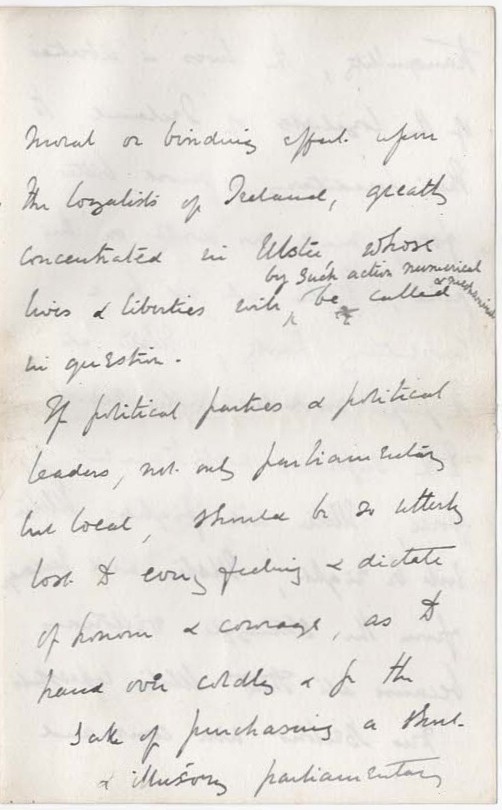 moral or binding effect upon
the Loyalists of Ireland, greatly
concentrated in Ulster whose
by such action numerical
& mechanical
lives & liberties will be called
in question.
If political parties & political
leaders, not only parliamentary
but local, should be so utterly
lost to every feeling & dictate
of honour & courage, as to
hand over coldly & for the
sake of purchasing a short
& illusory parliamentary